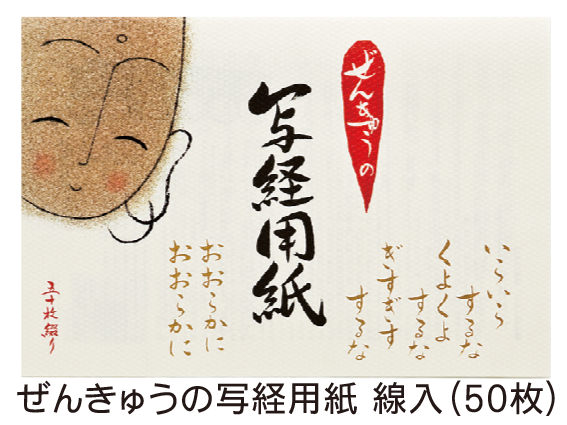 ぜんきゅうの
写経用紙
いらいら
するな
くよくよ
するな
ぎすぎす
するな
おおらかに
おおらかに
五十枚綴り
ぜんきゅうの写経用紙 線入(50枚)